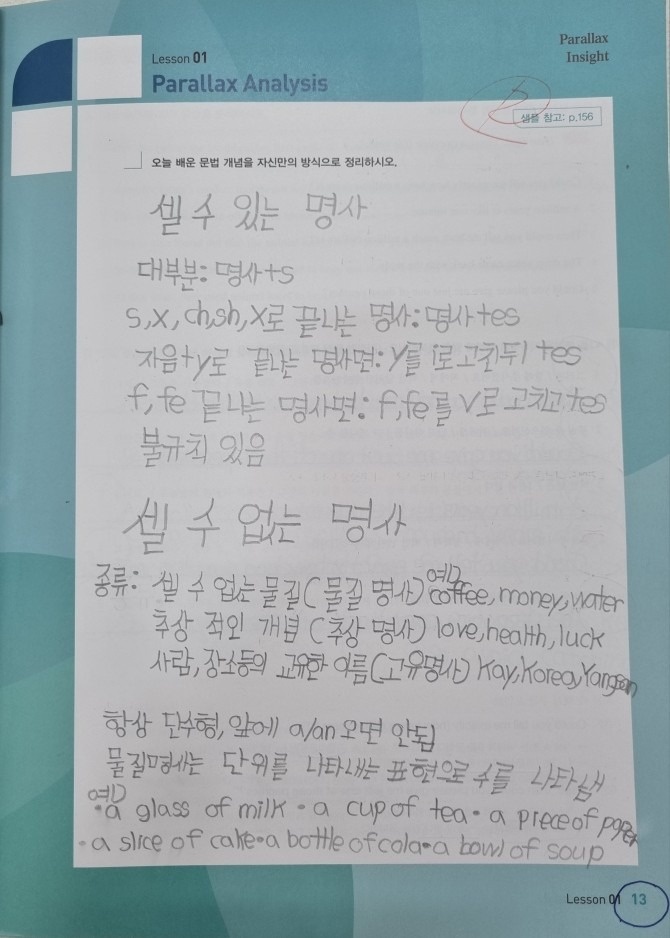 Lesson 01
Parallax Analysis
Parallax
Insight
샘플 참고: p.156
오늘 배운 문법 개념을 자신만의 방식으로 정리하시오.
셀 수 있는 명사
대부분: 명사+s
s,x,ch,sh,x로 끝나는 명사: 명사+es
자음+y로 끝나는 명사면: y를 i로 고친뒤 +es
f, fe 끝나는 명사면: f,fe를 v로 고치고+es
불규칙 있음
셀 수 없는 명사
종류: 셀 수 없는 물질(물질 명사) 예) coffee, money, water
추상 적인 개념 (추상 명사) love, health, luck
사람, 장소등의 고유한 이름(고유명사) Kay, Korea, Yangsan
항상 단수형, 앞에 a/an 오면 안됨
물질명사는 단위를 나타내는 표현으로 수를 나타냄
예)
·a glass of milk · a cup of tea · a priece of paper
·a slice of cake·a bottle of cola·a bowl of soup
Lesson 01 13